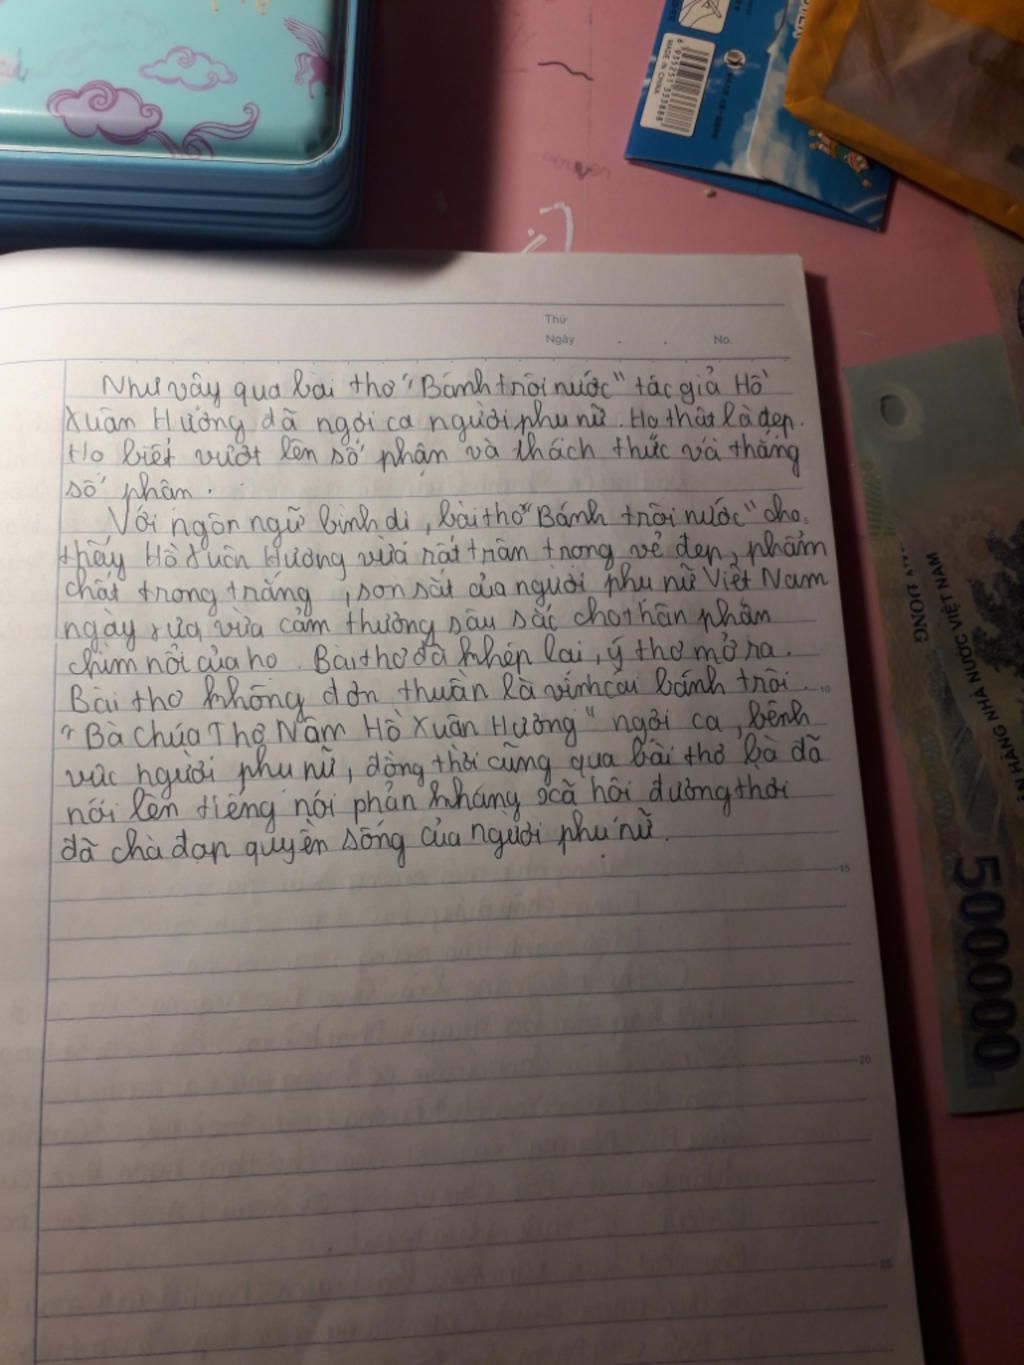 MADE IN CHINA
Thứ
Ngày . . No.
Như vậy qua bài thơ "Bánh trôi nước" tác giả Hồ
Xuân Hương đã ngợi ca người phụ nữ. Họ thật là đẹp.
Họ biết vượt lên số phận và thách thức và thắng
số phận.
Với ngôn ngữ bình dị, bài thơ "Bánh trôi nước" cho
thấy Hồ Xuân Hương vừa rất trân trọng vẻ đẹp, phẩm
chất trong trắng, son sắt của người phụ nữ Việt Nam
ngày xưa, vừa cảm thương sâu sắc cho thân phận
chìm nổi của họ. Bài thơ đã khép lại, ý thơ mở ra.
Bài thơ không đơn thuần là vịnh cái bánh trôi.
10
"Bà Chúa Thơ Nôm Hồ Xuân Hương" ngợi ca, bênh
vực người phụ nữ, đồng thời cũng qua bài thơ bà đã
nói lên tiếng nói phản kháng xã hội đương thời
đã chà đạp quyền sống của người phụ nữ.
15
20
25
NGÂN HÀNG NHÀ NƯỚC VIỆT NAM
ĐỒNG
500000